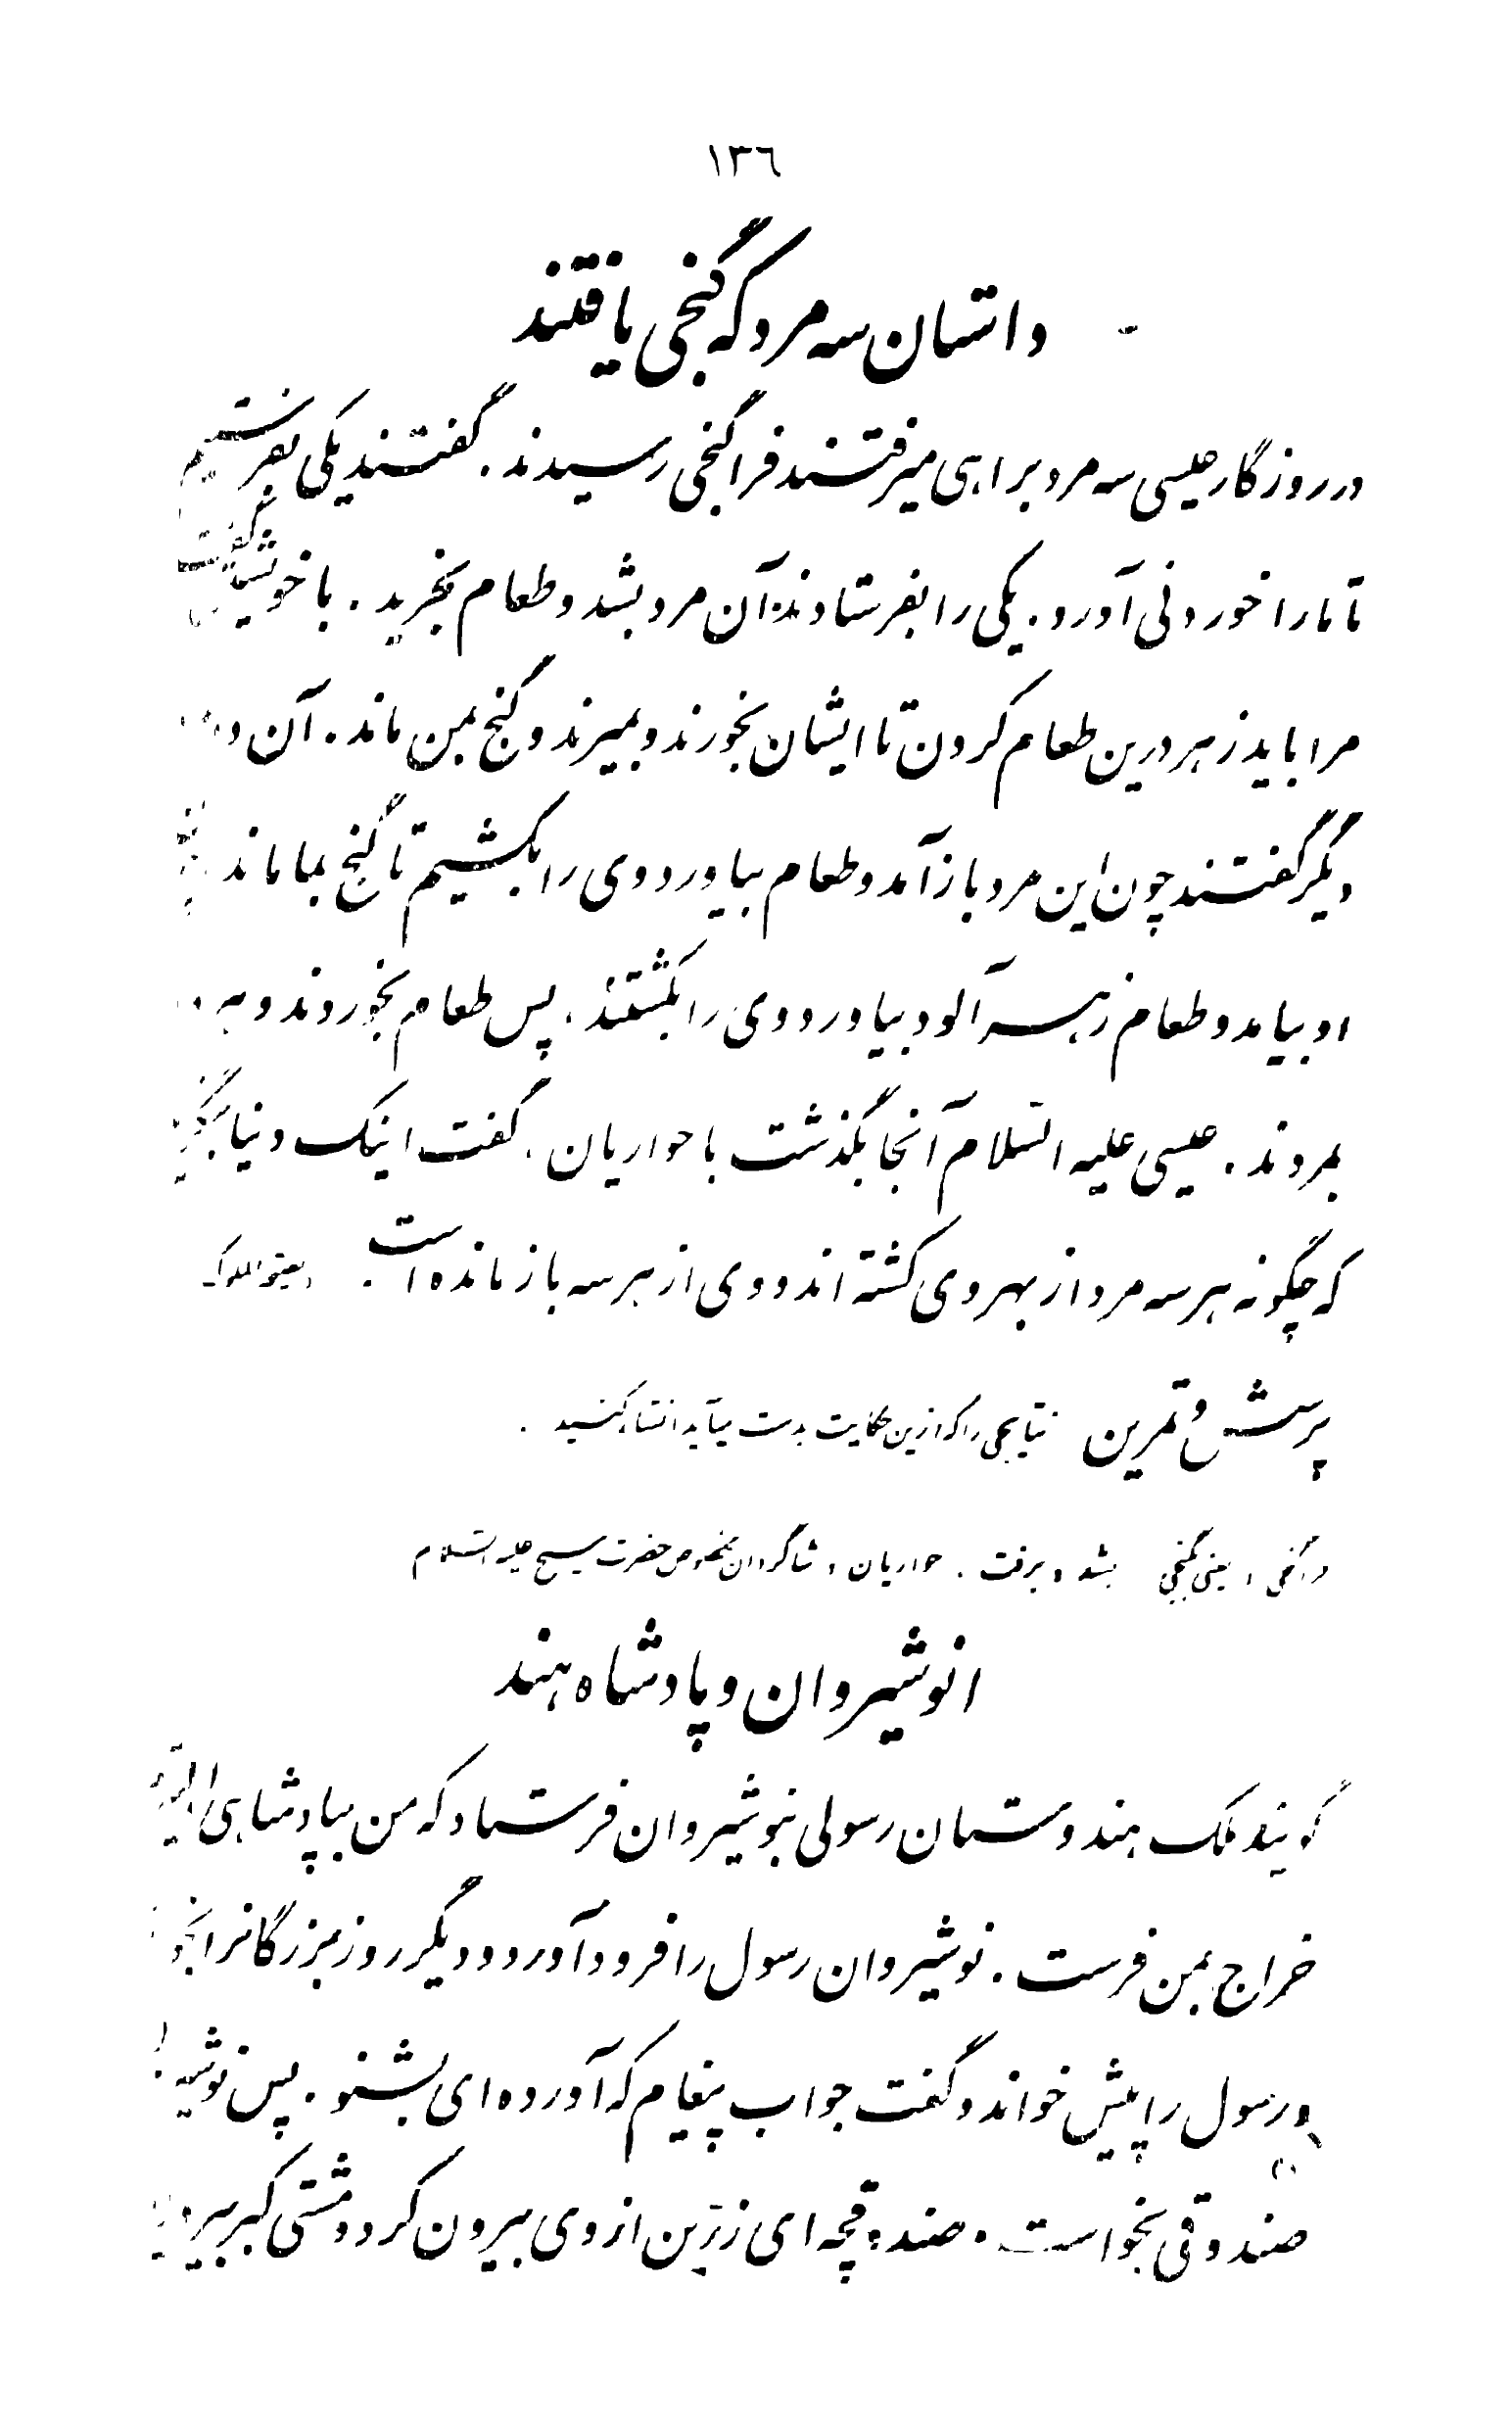 ۱۳٦
داستان سه مرد که گنجی یافتند
در روزگار عیسی سه مرد براهی میرفتند فرا گنجی رسیدند . گفتند یکی بفرستیم
تا ما را خوردنی آورد . یکی را بفرستادند آن مرد بشد و طعام بخرید . با خویشتن گفت
مرا باید زهر درین طعام کردن تا ایشان بخورند و بمیرند و گنج بمن ماند . آن دو
دیگر گفتند چون این مرد باز آمد و طعام بیاورد وی را بکشیم تا گنج بما ماند
او بیامد و طعام زهر آلود بیاورد وی را بکشتند ، پس طعام بخوردند و هر دو
بمردند . عیسی علیه السّلام آنجا بگذشت با حواریان . گفت اینک دنیا بنگرید
که چگونه هر سه مرد از بهر وی کشته اند و وی از هر سه باز مانده است .
پرسش و تمرین نتایجی را که ازین حکایت بدست میآید انشاء کنید .
یعنی بگنجی بشد ، برفت . حواریان ، شاگردان مخصوص حضرت مسیح علیه السّلام
انوشیروان و پادشاه هند
گویند ملک هندوستان رسولی بنوشیروان فرستاد که من بپادشاهی
خراج بمن فرست . نوشیروان رسول را فرود آورد و دیگر روز بزرگانرا
و رسول را پیش خواند و گفت جواب پیغام که آورده ای بشنو . پس
صندوقی بخواست . صندوقچه ای زرّین از وی بیرون کرد و مشتی کبر